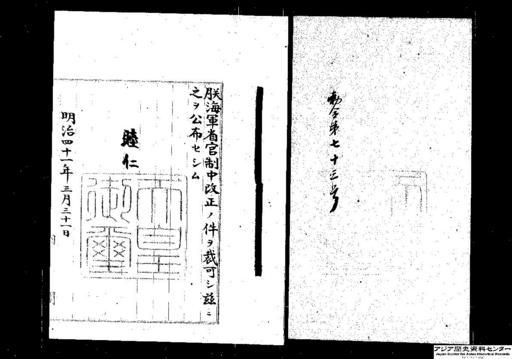 勅令第七十三号
朕海軍省官制中改正ノ件ヲ裁可シ茲ニ
之ヲ公布セシム
睦仁
天皇御璽
明治四十一年三月三十一日
アジア歴史資料センター
Japan Center for Asian Historical Records